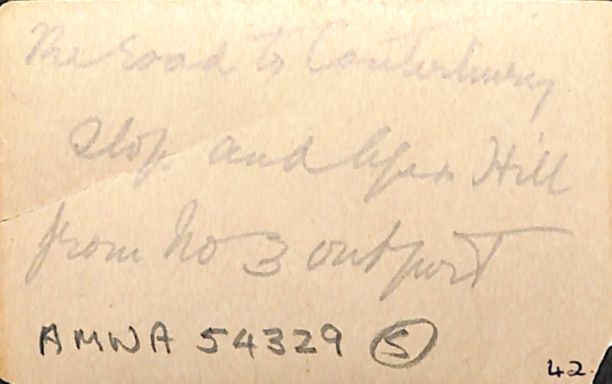 The road to Canterbury
Slope and Gun Hill
from No 3 outpost
AMWA 54329 5
42.